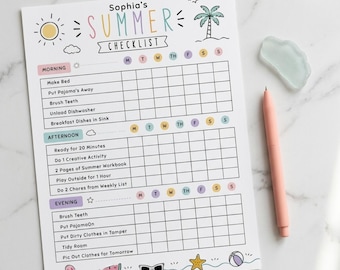 Sophia's
SUMMER
CHECKLIST
MORNING
M T W TH F S S
Make Bed
Put Pajama's Away
Brush Teeth
Unload Dishwasher
Breakfast Dishes in Sink
AFTERNOON
M T W TH F S S
Ready for 20 Minutes
Do 1 Creative Activity
2 Pages of Summer Workbook
Play Outside for 1 Hour
Do 2 Chores from Weekly List
EVENING
M T W TH F S S
Brush Teeth
Put PajamaOn
Put Dirty Clothes in Tamper
Tidy Room
Pic Out Clothes for Tomorrow